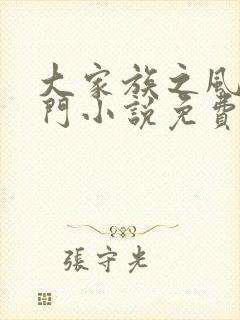 大家族之風
門小說免費
張守光